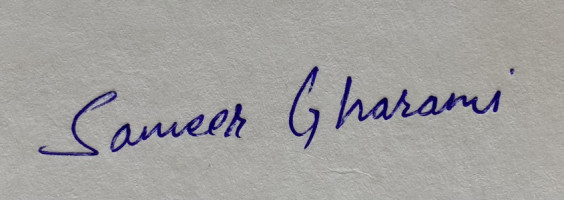 Sameer Gharami